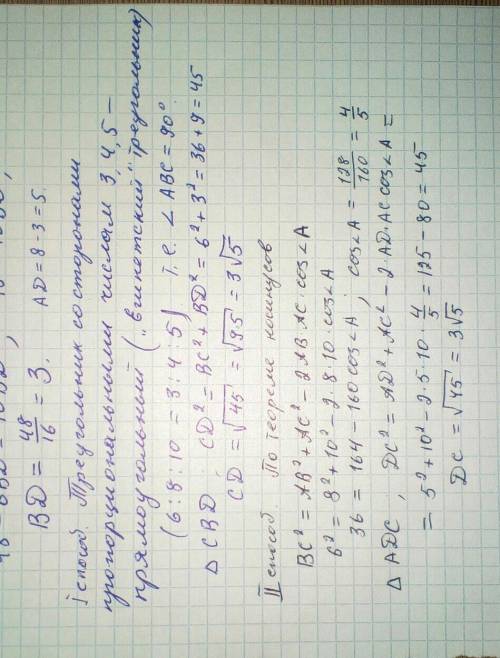 BD = 48/16 = 3. AD = 8 - 3 = 5.
I способ. Треугольник со сторонами
пропорциональными числам 3, 4, 5 –
прямоугольный („египетский" треугольник)
(6 : 8 : 10 = 3 : 4 : 5) т.е. ∠ABC = 90°
△ CBD, CD² = BC² + BD² = 6² + 3² = 36 + 9 = 45
CD = √45 = √9·5 = 3√5
II способ. По теореме косинусов
BC² = AB² + AC² - 2AB·AC·cos∠A
6² = 8² + 10² - 2·8·10·cos∠A
36 = 164 - 160cos∠A ; cos∠A = 128/160 = 4/5
△ ADC, DC² = AD² + AC² - 2·AD·AC cos∠A =
= 5² + 10² - 2·5·10·4/5 = 125 - 80 = 45
DC = √45 = 3√5